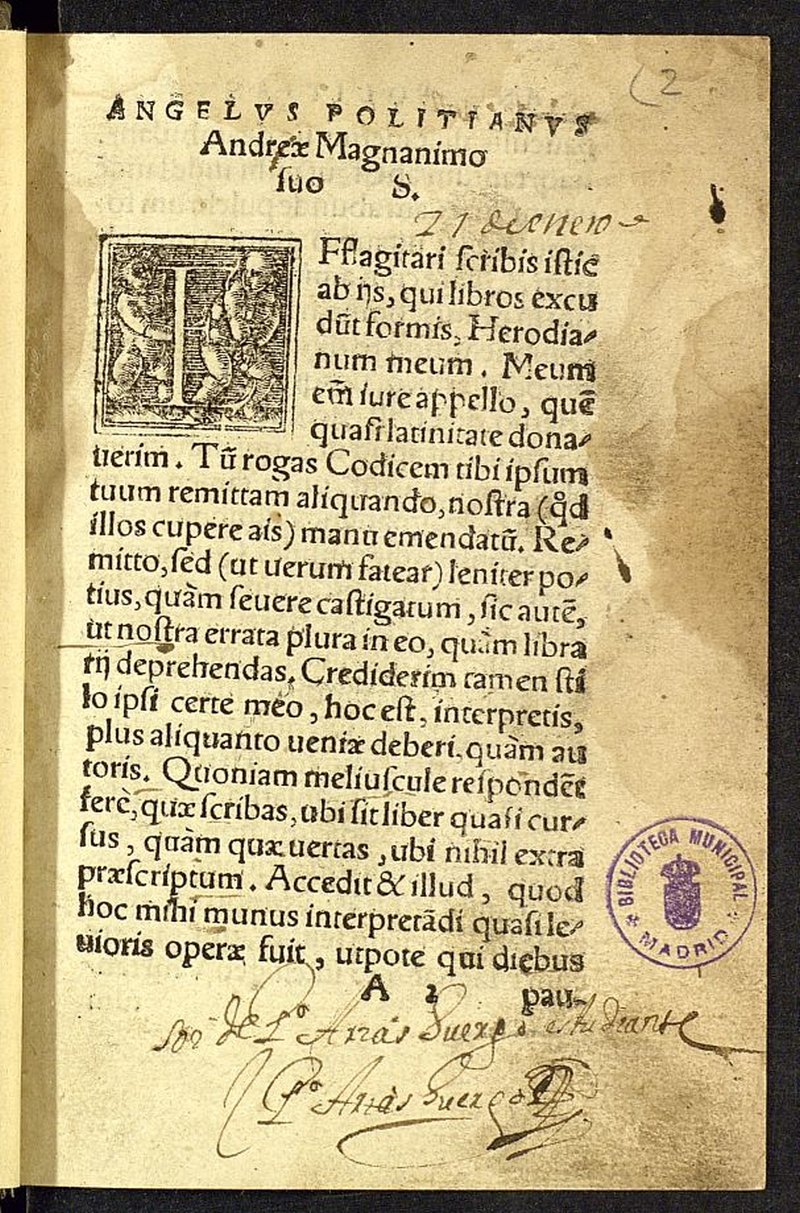 (2
ANGELVS POLITIANVS
Andreæ Magnanimo
ſuo S.
21 de enero
IFflagitari ſcribis iſtic
ab ijs, qui libros excu
dūt formis, Herodia-
num meum. Meum
em̄ iure appello, quē
quaſi latinitate dona-
uerim. Tū rogas Codicem tibi ipſum
tuum remittam aliquando, noſtra (qd̄
illos cupere ais) manu emendatū. Re-
mitto, ſed (ut uerum fatear) leniter po-
tius, quàm ſeuere caſtigatum, ſic autē,
ut noſtra errata plura in eo, quàm libra
rij deprehendas. Crediderim tamen ſti
lo ipſi certe meo, hoc eſt, interpretis,
plus aliquanto ueniæ deberi, quàm au
toris. Quoniam meliuſcule reſpondēt
ferè, quæ ſcribas, ubi ſit liber quaſi cur-
ſus, quàm quæ uertas, ubi nihil extra
præſcriptum. Accedit & illud, quod
hoc mihi munus interpretādi quaſi le-
uioris operæ fuit, utpote qui diebus
A 2 pau-
Soi de P.º Arias Huergo estudiante
P.º Arias Huergo
BIBLIOTECA MUNICIPAL
MADRID